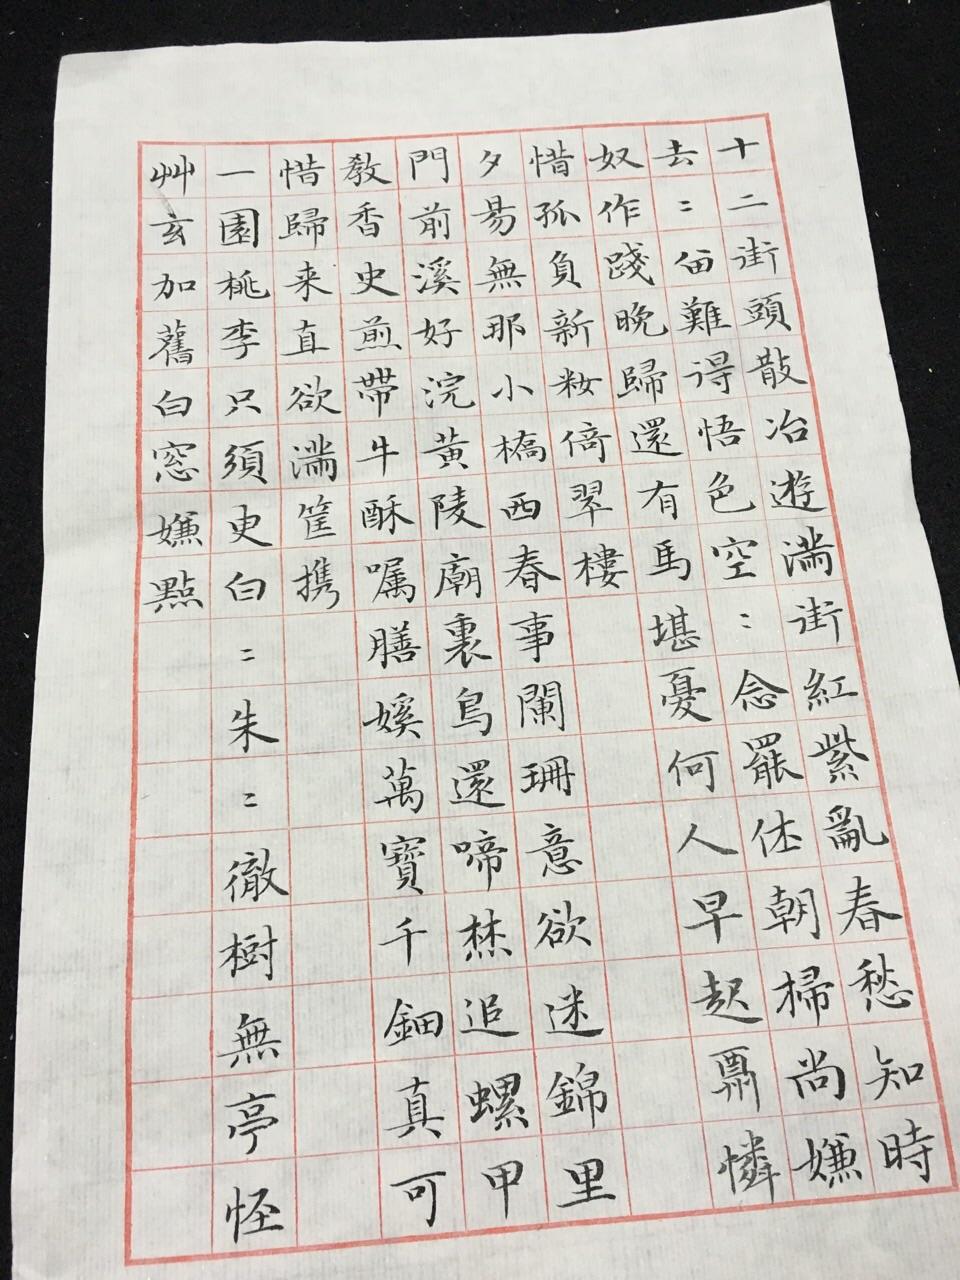 十二街頭散冶遊滿街紅紫亂春愁知時
去〻留難得悟色空〻念罷休朝掃尚嫌
奴作踐晚歸還有馬堪憂何人早起聊憐
惜孤負新妝倚翠樓
夕易無那小橋西春事闌珊意欲迷錦里
門前溪好浣黃陵廟裏鳥還啼焚追螺甲
教香史煎帶牛酥囑膳媛萬寶千鈿真可
惜歸来直欲滿筐携
一園桃李只須臾白〻朱〻徹樹無亭怪
艸玄加舊白窓嫌點